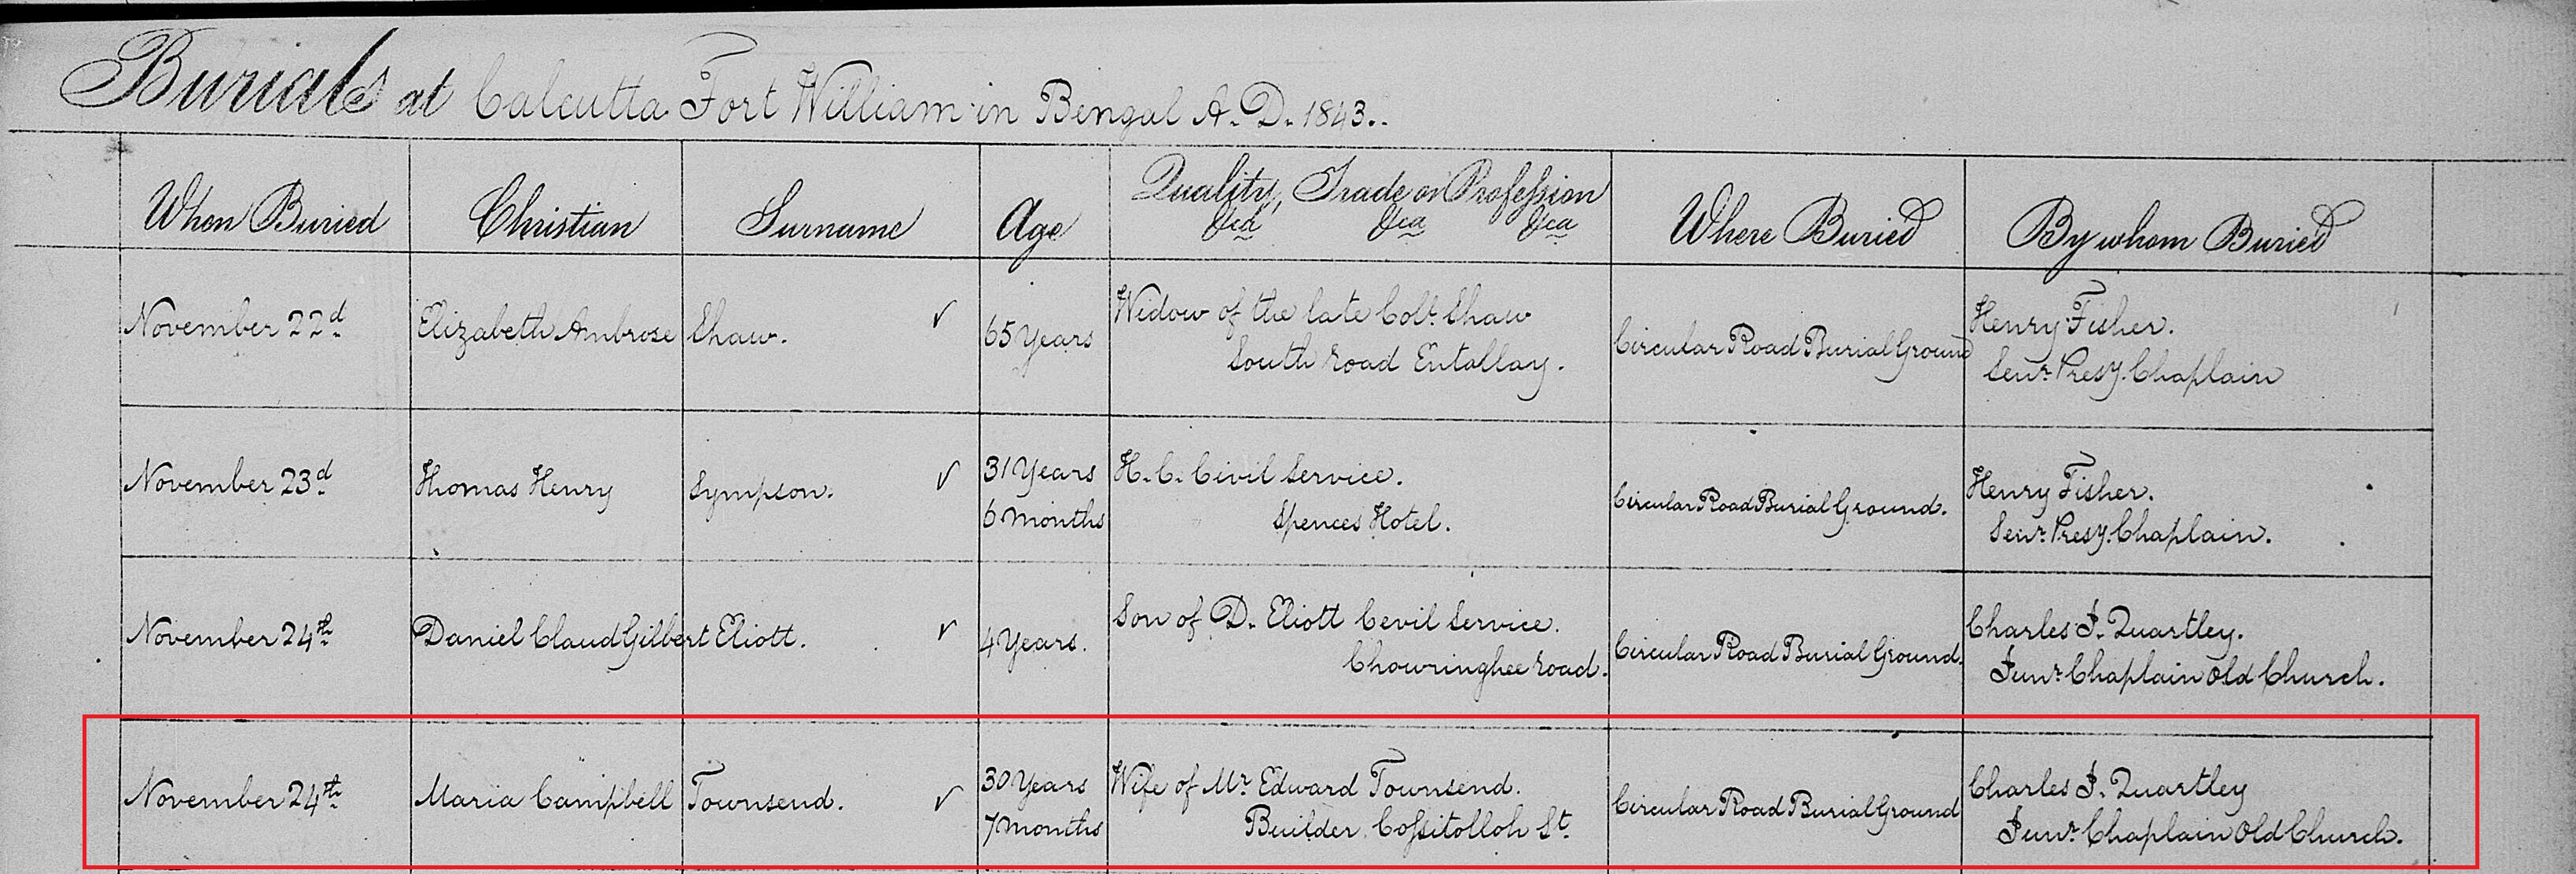 Burials at Calcutta Fort William in Bengal A.D. 1843.
When Buried Christian Surname Age Quality, Trade or Profession &ca &ca &ca Where Buried By whom Buried
November 22d Elizabeth Ambrose Shaw. ✓ 65 Years Widow of the late Colr. Shaw Circular Road Burial Ground Henry Fisher.
South road Entallay. Senr. Presy. Chaplain
November 23d Thomas Henry Sympson. ✓ 31 Years H. C. Civil Service. Circular Road Burial Ground. Henry Fisher.
6 months Spences Hotel. Senr. Presy. Chaplain.
November 24th Daniel Claud Gilbert Eliott. ✓ 4 Years. Son of D. Eliott Cevil Service. Circular Road Burial Ground. Charles J. Quartley.
Chowringhee road. Junr. Chaplain Old Church.
November 24th Maria Campbell Townsend. ✓ 30 Years Wife of Mr. Edward Townsend. Circular Road Burial Ground Charles J. Quartley
7 months Builder. Cossitolloh St. Junr. Chaplain Old Church.